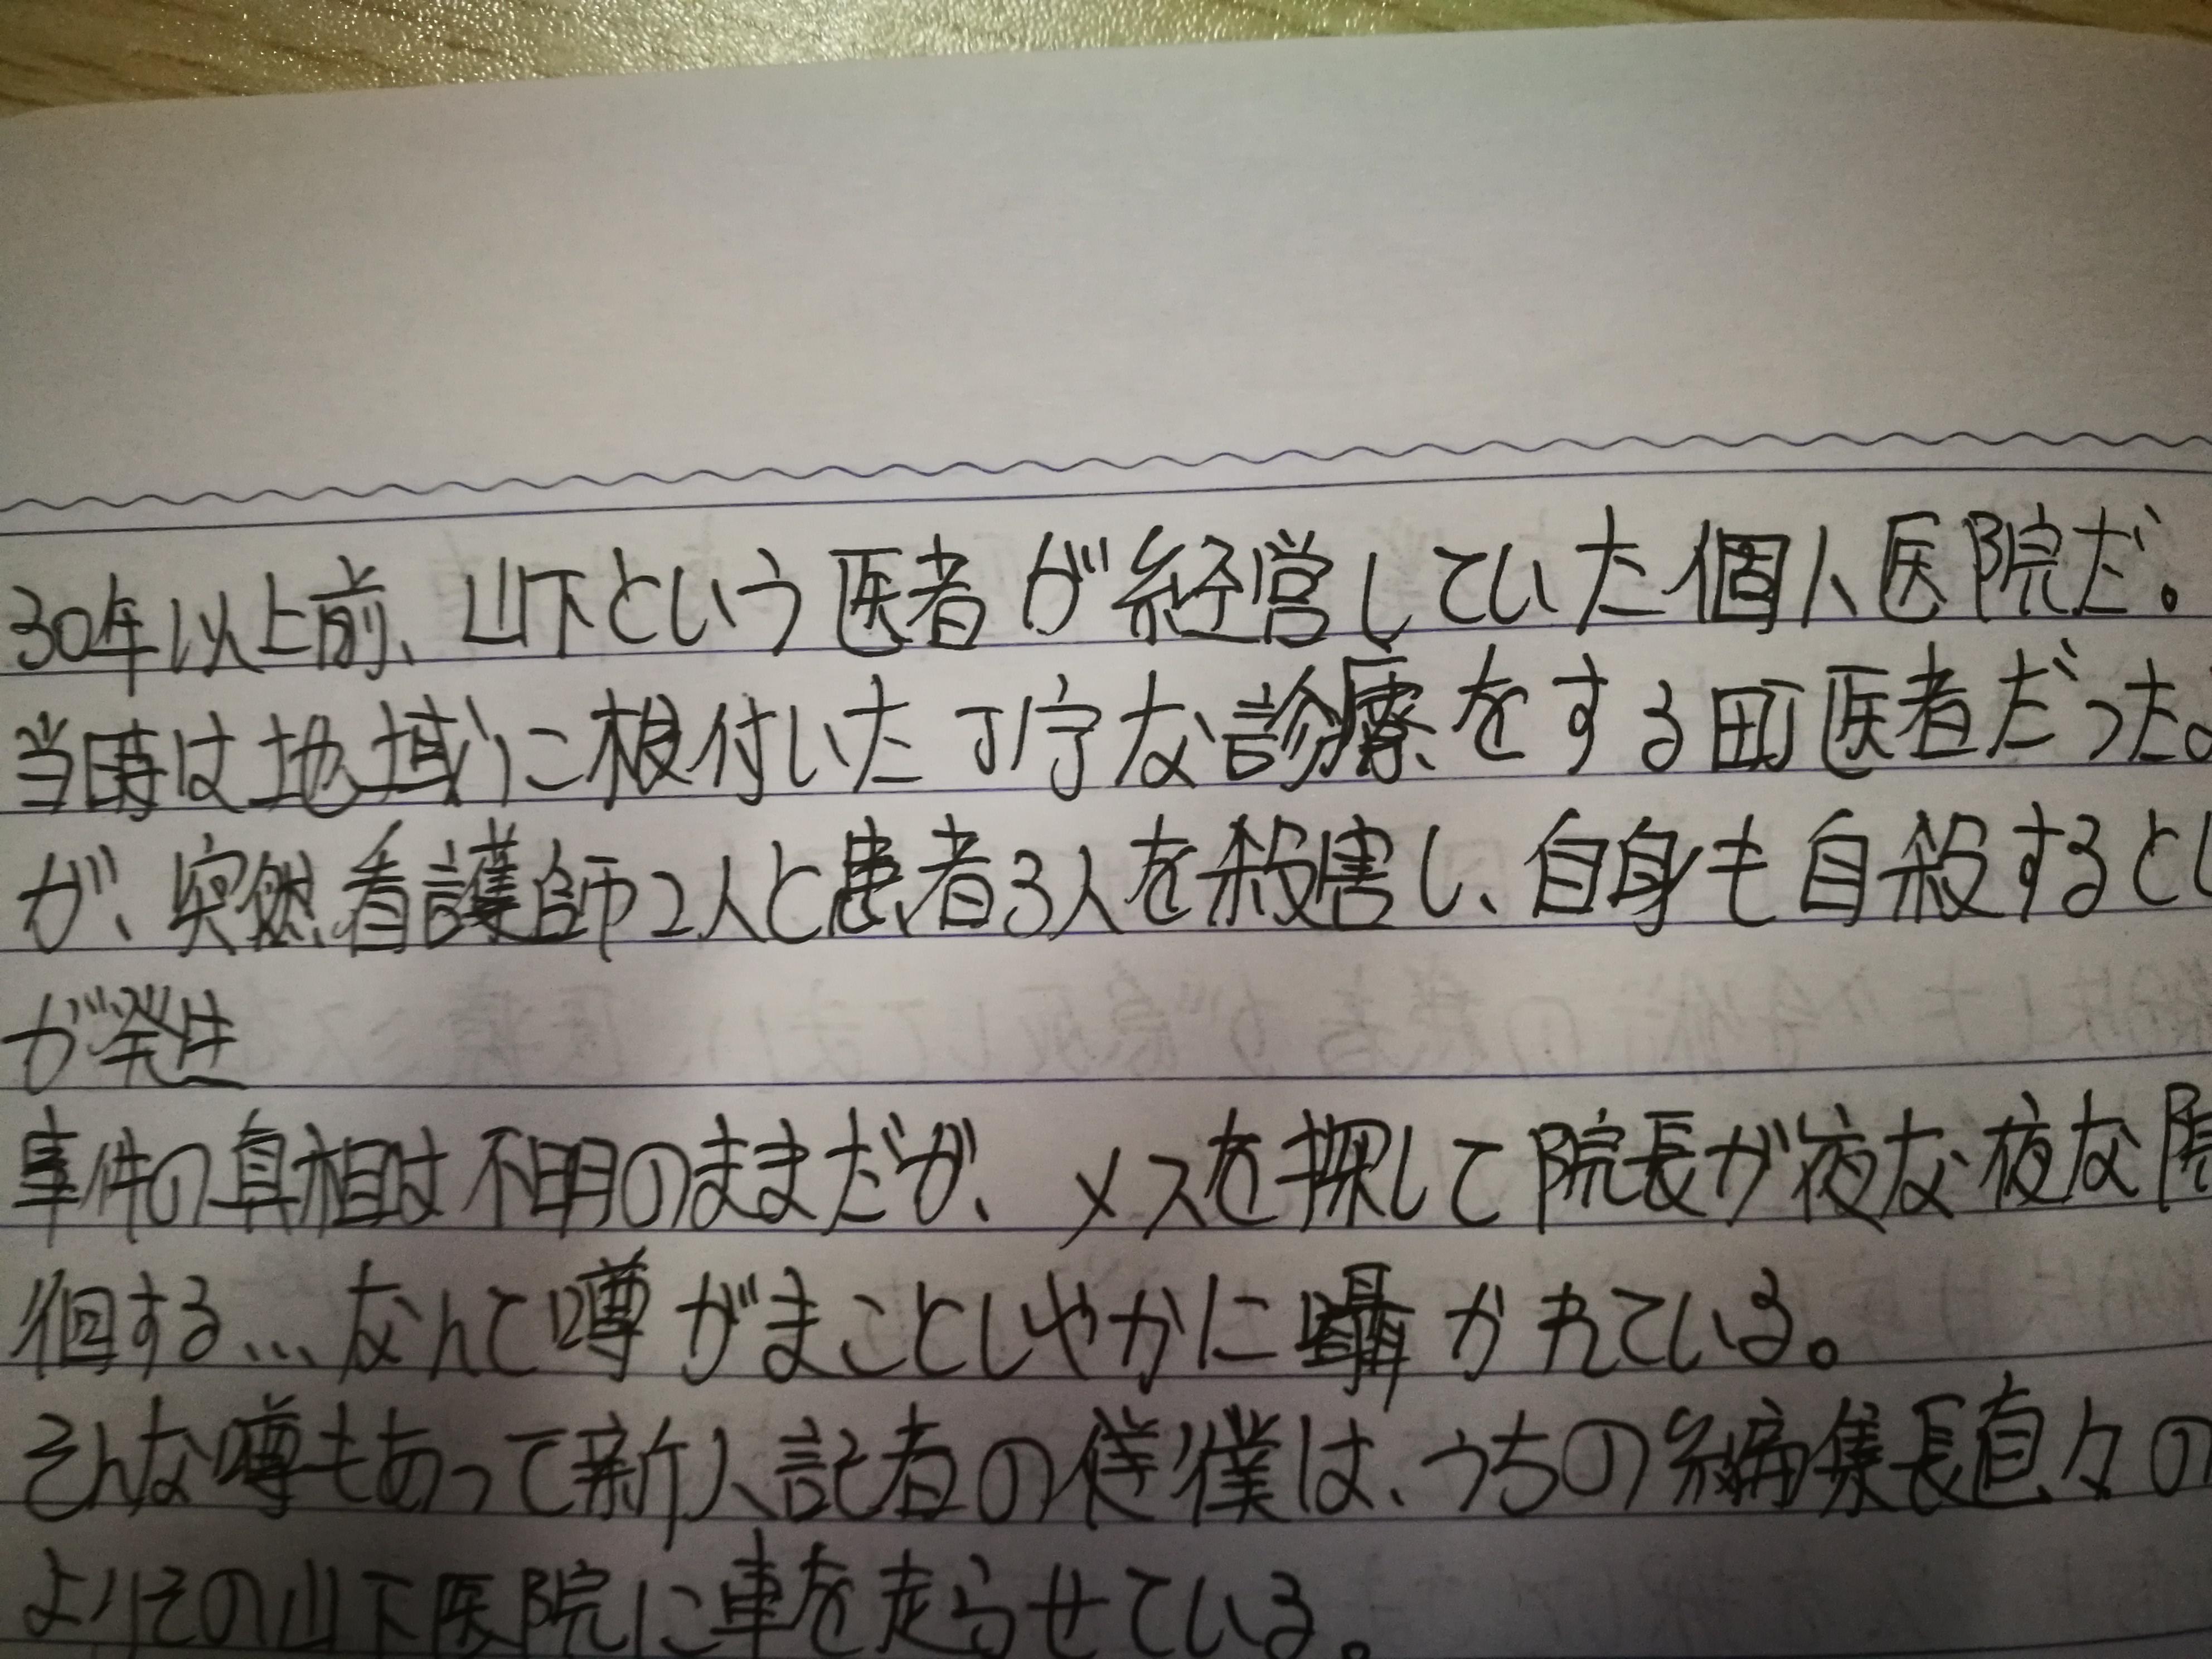 30年以上前、山下という医者が経営していた個人医院だ。
当時は地域に根付いた丁寧な診療をする町医者だった。
が、突然看護師2人と患者3人を殺害し、自身も自殺すると
が発生
事件の真相は不明のままだが、メスを探して院長が夜な夜な院
徊する...なんて噂がまことしやかに囁かれている。
そんな噂もあって新人記者の僕は、うちの編集長直々の
よりその山下医院に車を走らせている。